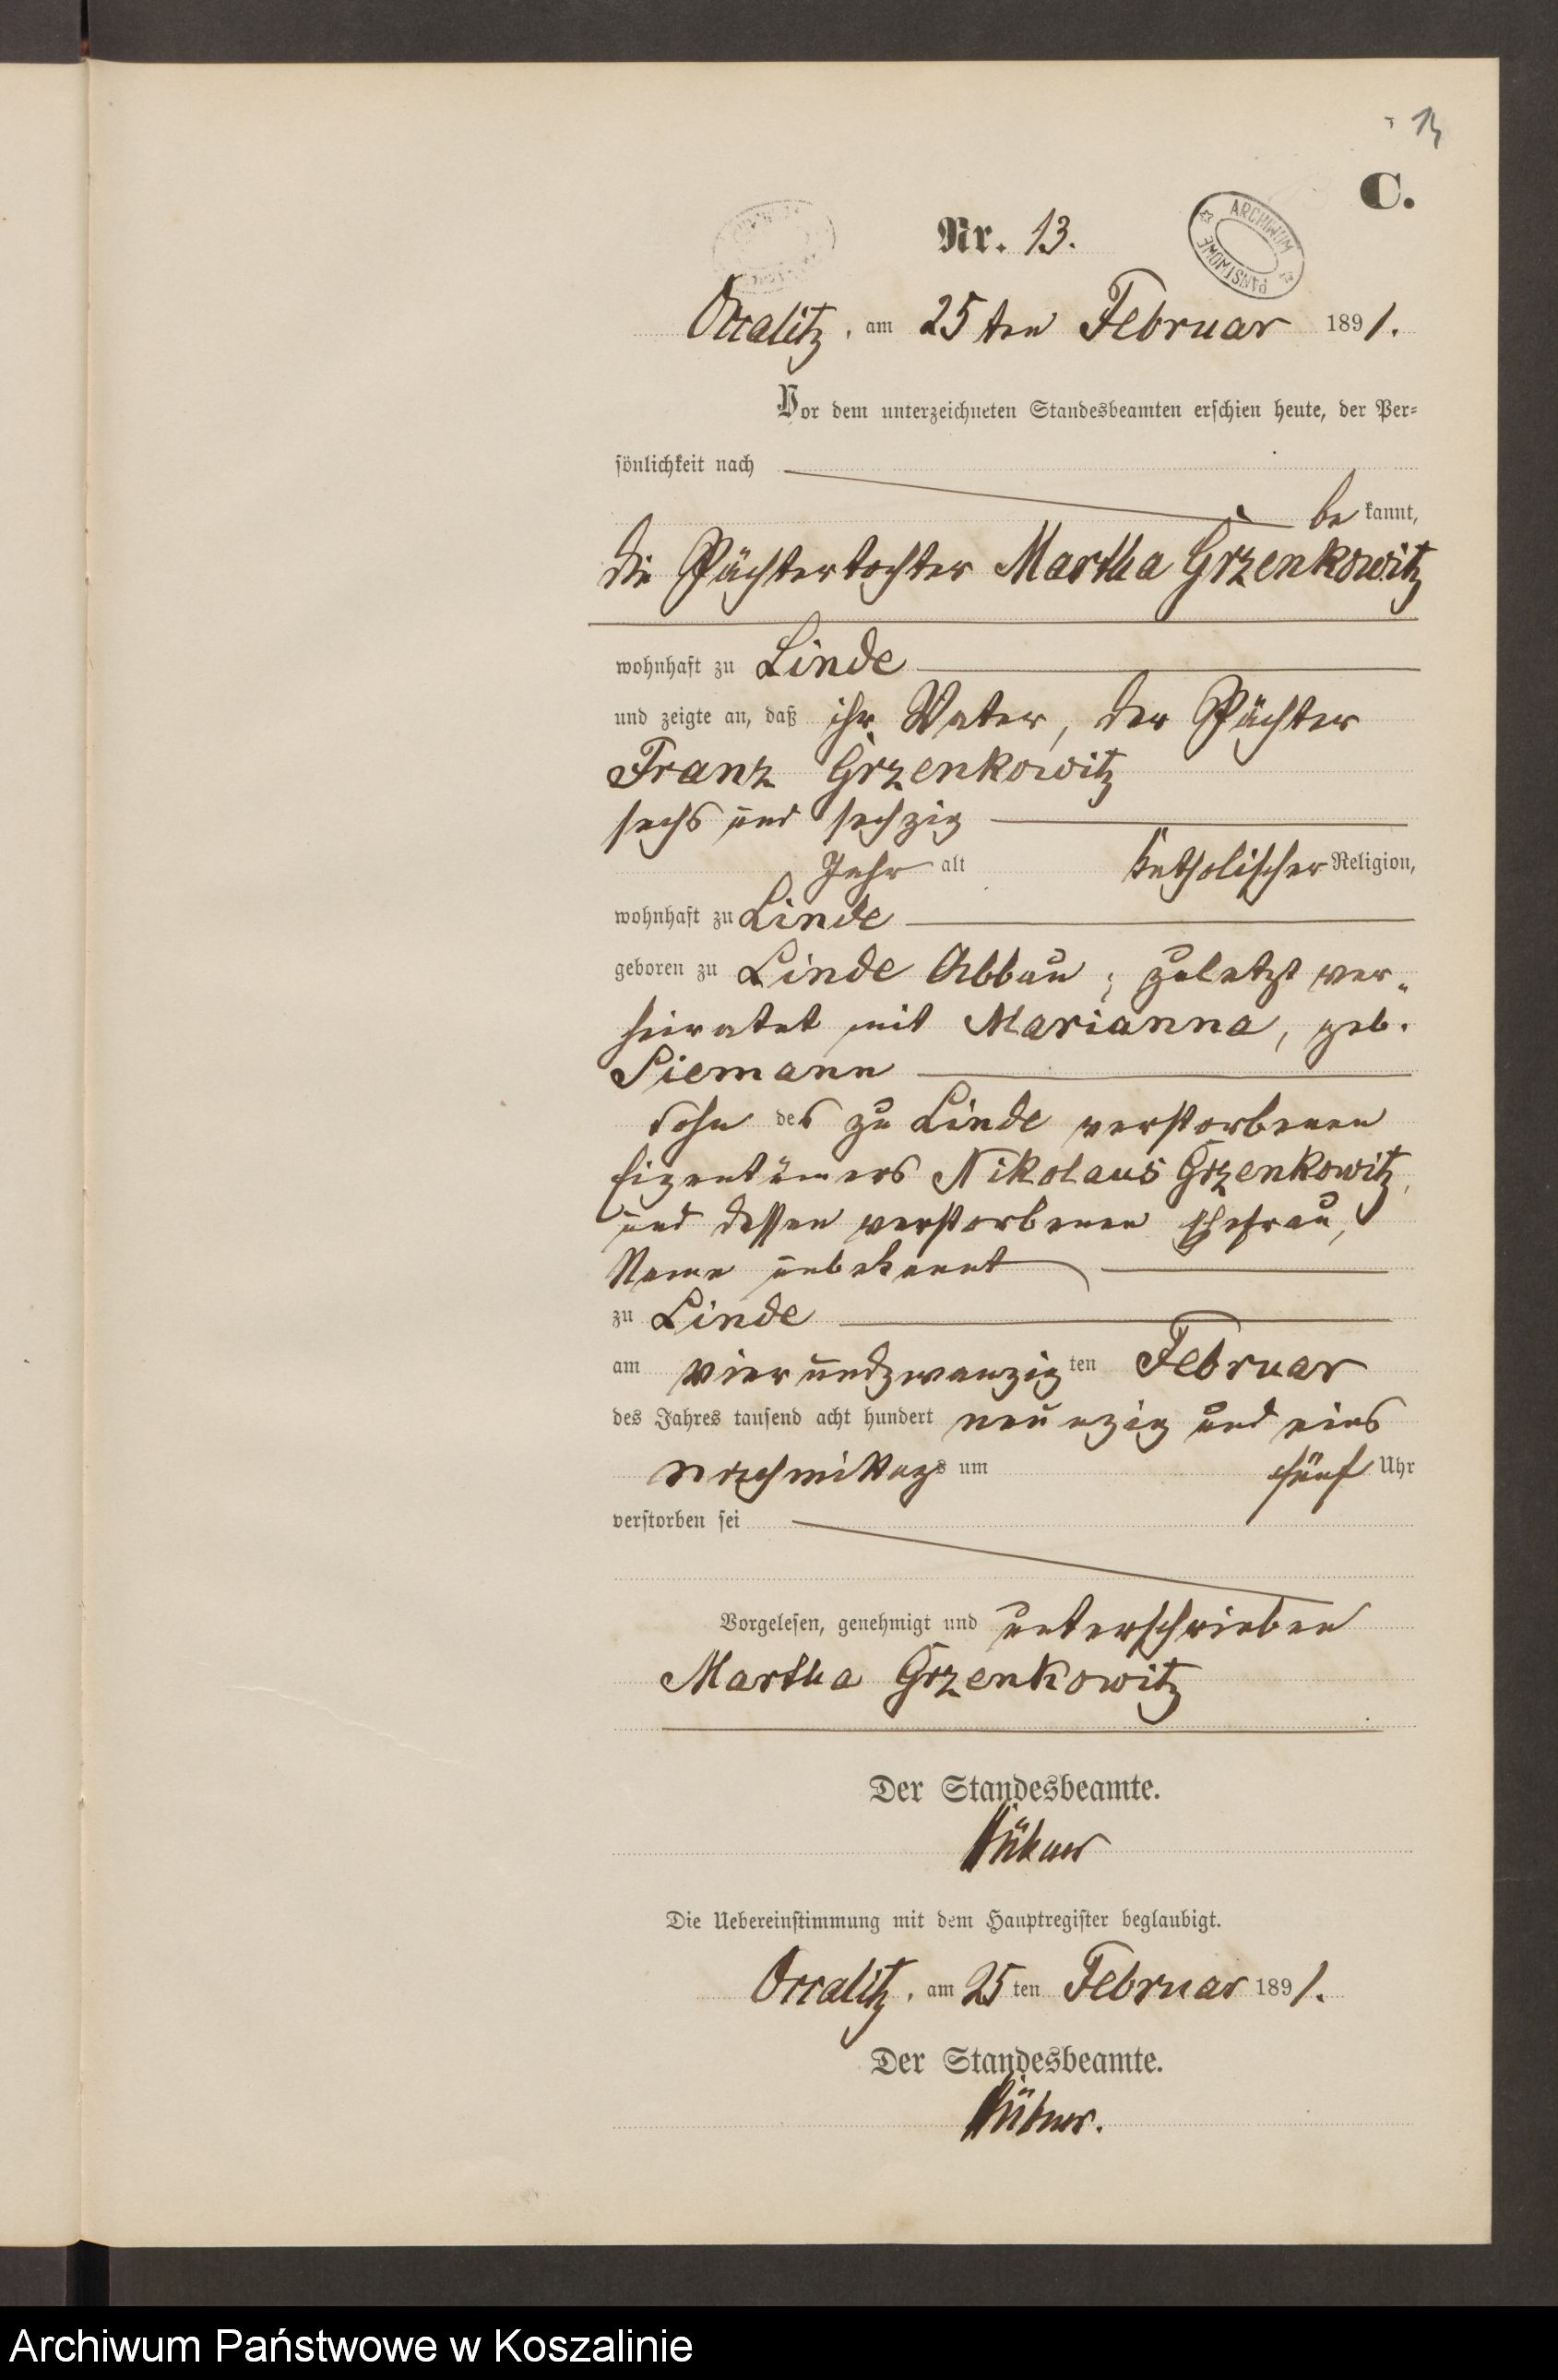 13
C.
Nr. 13.
ARCHIWUM PAŃSTWOWE
Occalitz, am 25ten Februar 1891.
Vor dem unterzeichneten Standesbeamten erschien heute, der Per=
sönlichkeit nach
be kannt,
die Pächtertochter Martha Grzenkowitz
wohnhaft zu Linde
und zeigte an, daß ihr Vater, der Pächter
Franz Grzenkowitz
sechs und sechzig
Jahr alt katholischer Religion,
wohnhaft zu Linde
geboren zu Linde Abbau, zuletzt ver=
heiratet mit Marianna, geb.
Siemann
Sohn des zu Linde verstorbenen
Eigentümers Nikolaus Grzenkowitz,
und dessen verstorbenen Ehefrau,
Name unbekannt
zu Linde
am vierundzwanzigten Februar
des Jahres tausend acht hundert neunzig und eins
Nachmittags um fünf Uhr
verstorben sei
Vorgelesen, genehmigt und unterschrieben
Martha Grzenkowitz
Der Standesbeamte.
Die Uebereinstimmung mit dem Hauptregister beglaubigt.
Occalitz, am 25ten Februar 1891.
Der Standesbeamte.
Archiwum Państwowe w Koszalinie